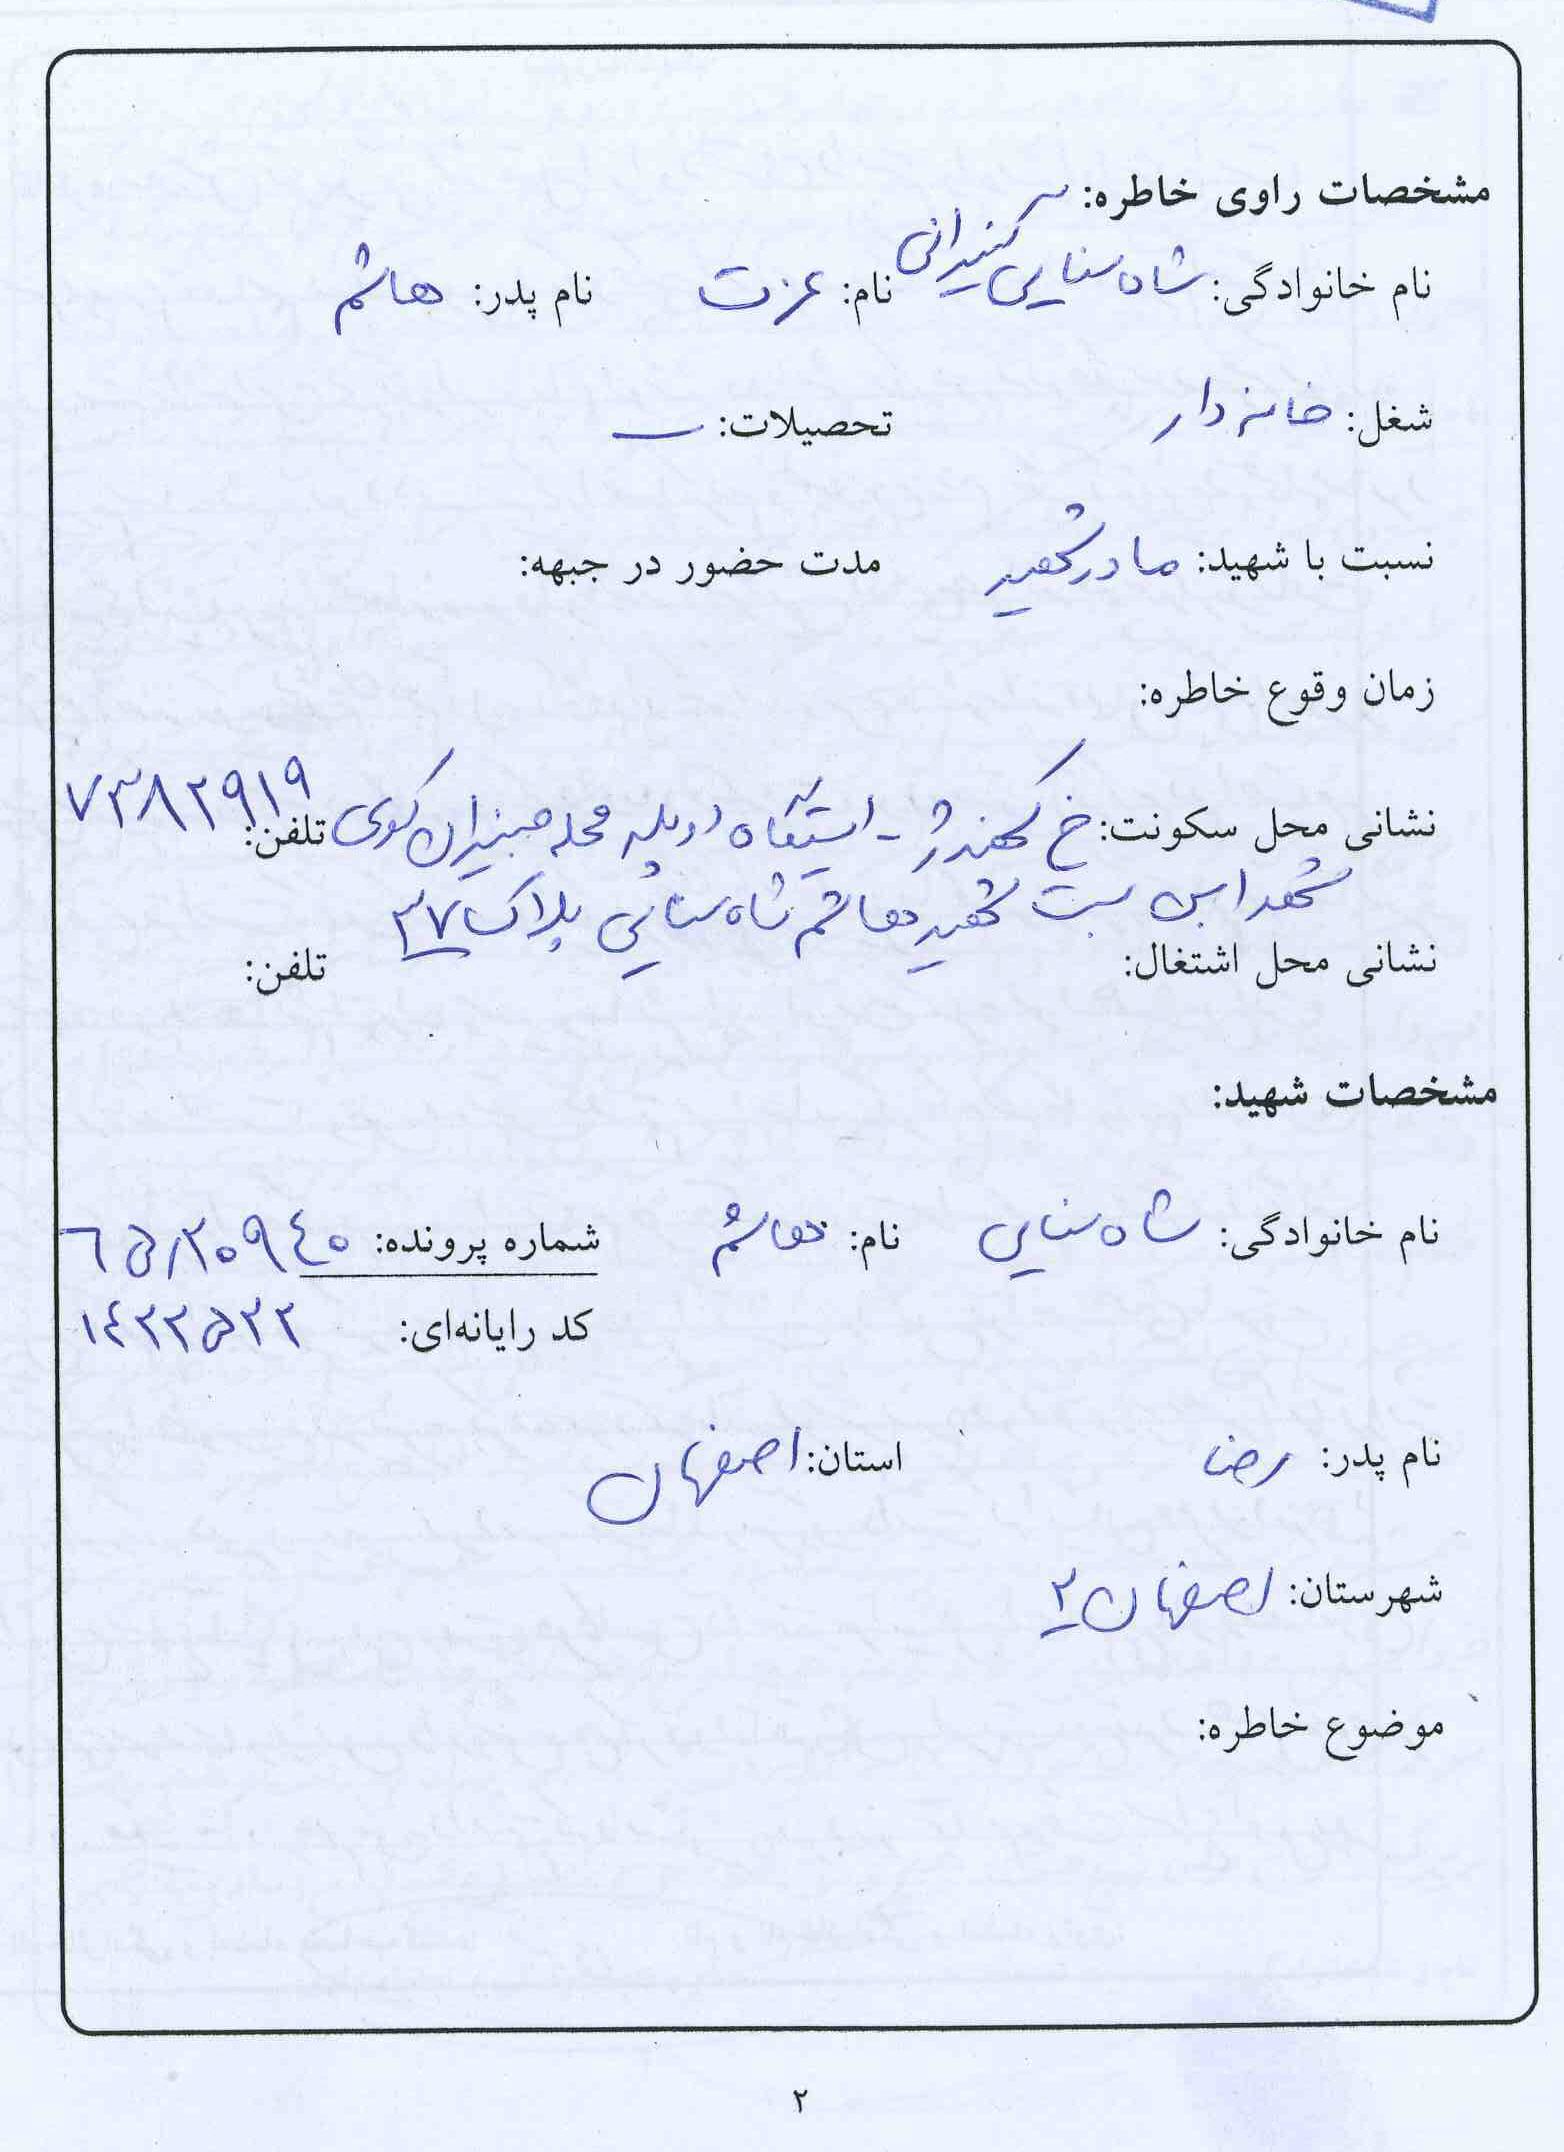 مشخصات راوی خاطره:
نام خانوادگی: شاه سنایی نام: عزت نام پدر: هاشم
شغل: خانه دار تحصیلات: ــ
نسبت با شهید: مادر شهید مدت حضور در جبهه:
زمان وقوع خاطره:
نشانی محل سکونت: خ کهندژ - ایستگاه دو پله محله جنیران کوی تلفن: ۷۳۸۲۹۱۹
شهدا بن بست شهید هاشم شاه سنائی پلاک ۳۷
نشانی محل اشتغال: تلفن:
مشخصات شهید:
نام خانوادگی: شاه سنایی نام: هاشم شماره پرونده: ۶۵/۲۰۹۴۰
کد رایانه‌ای: ۱۴۲۲۵۲۲
نام پدر: رضا استان: اصفهان
شهرستان: اصفهان ۲
موضوع خاطره:
۲